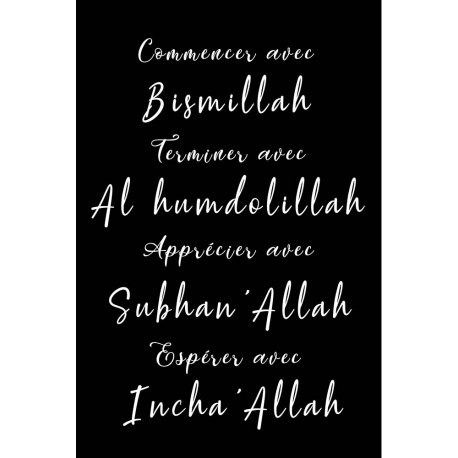 Commencer avec
Bismillah
Terminer avec
Al humdolillah
Apprécier avec
Subhan'Allah
Espérer avec
Incha'Allah